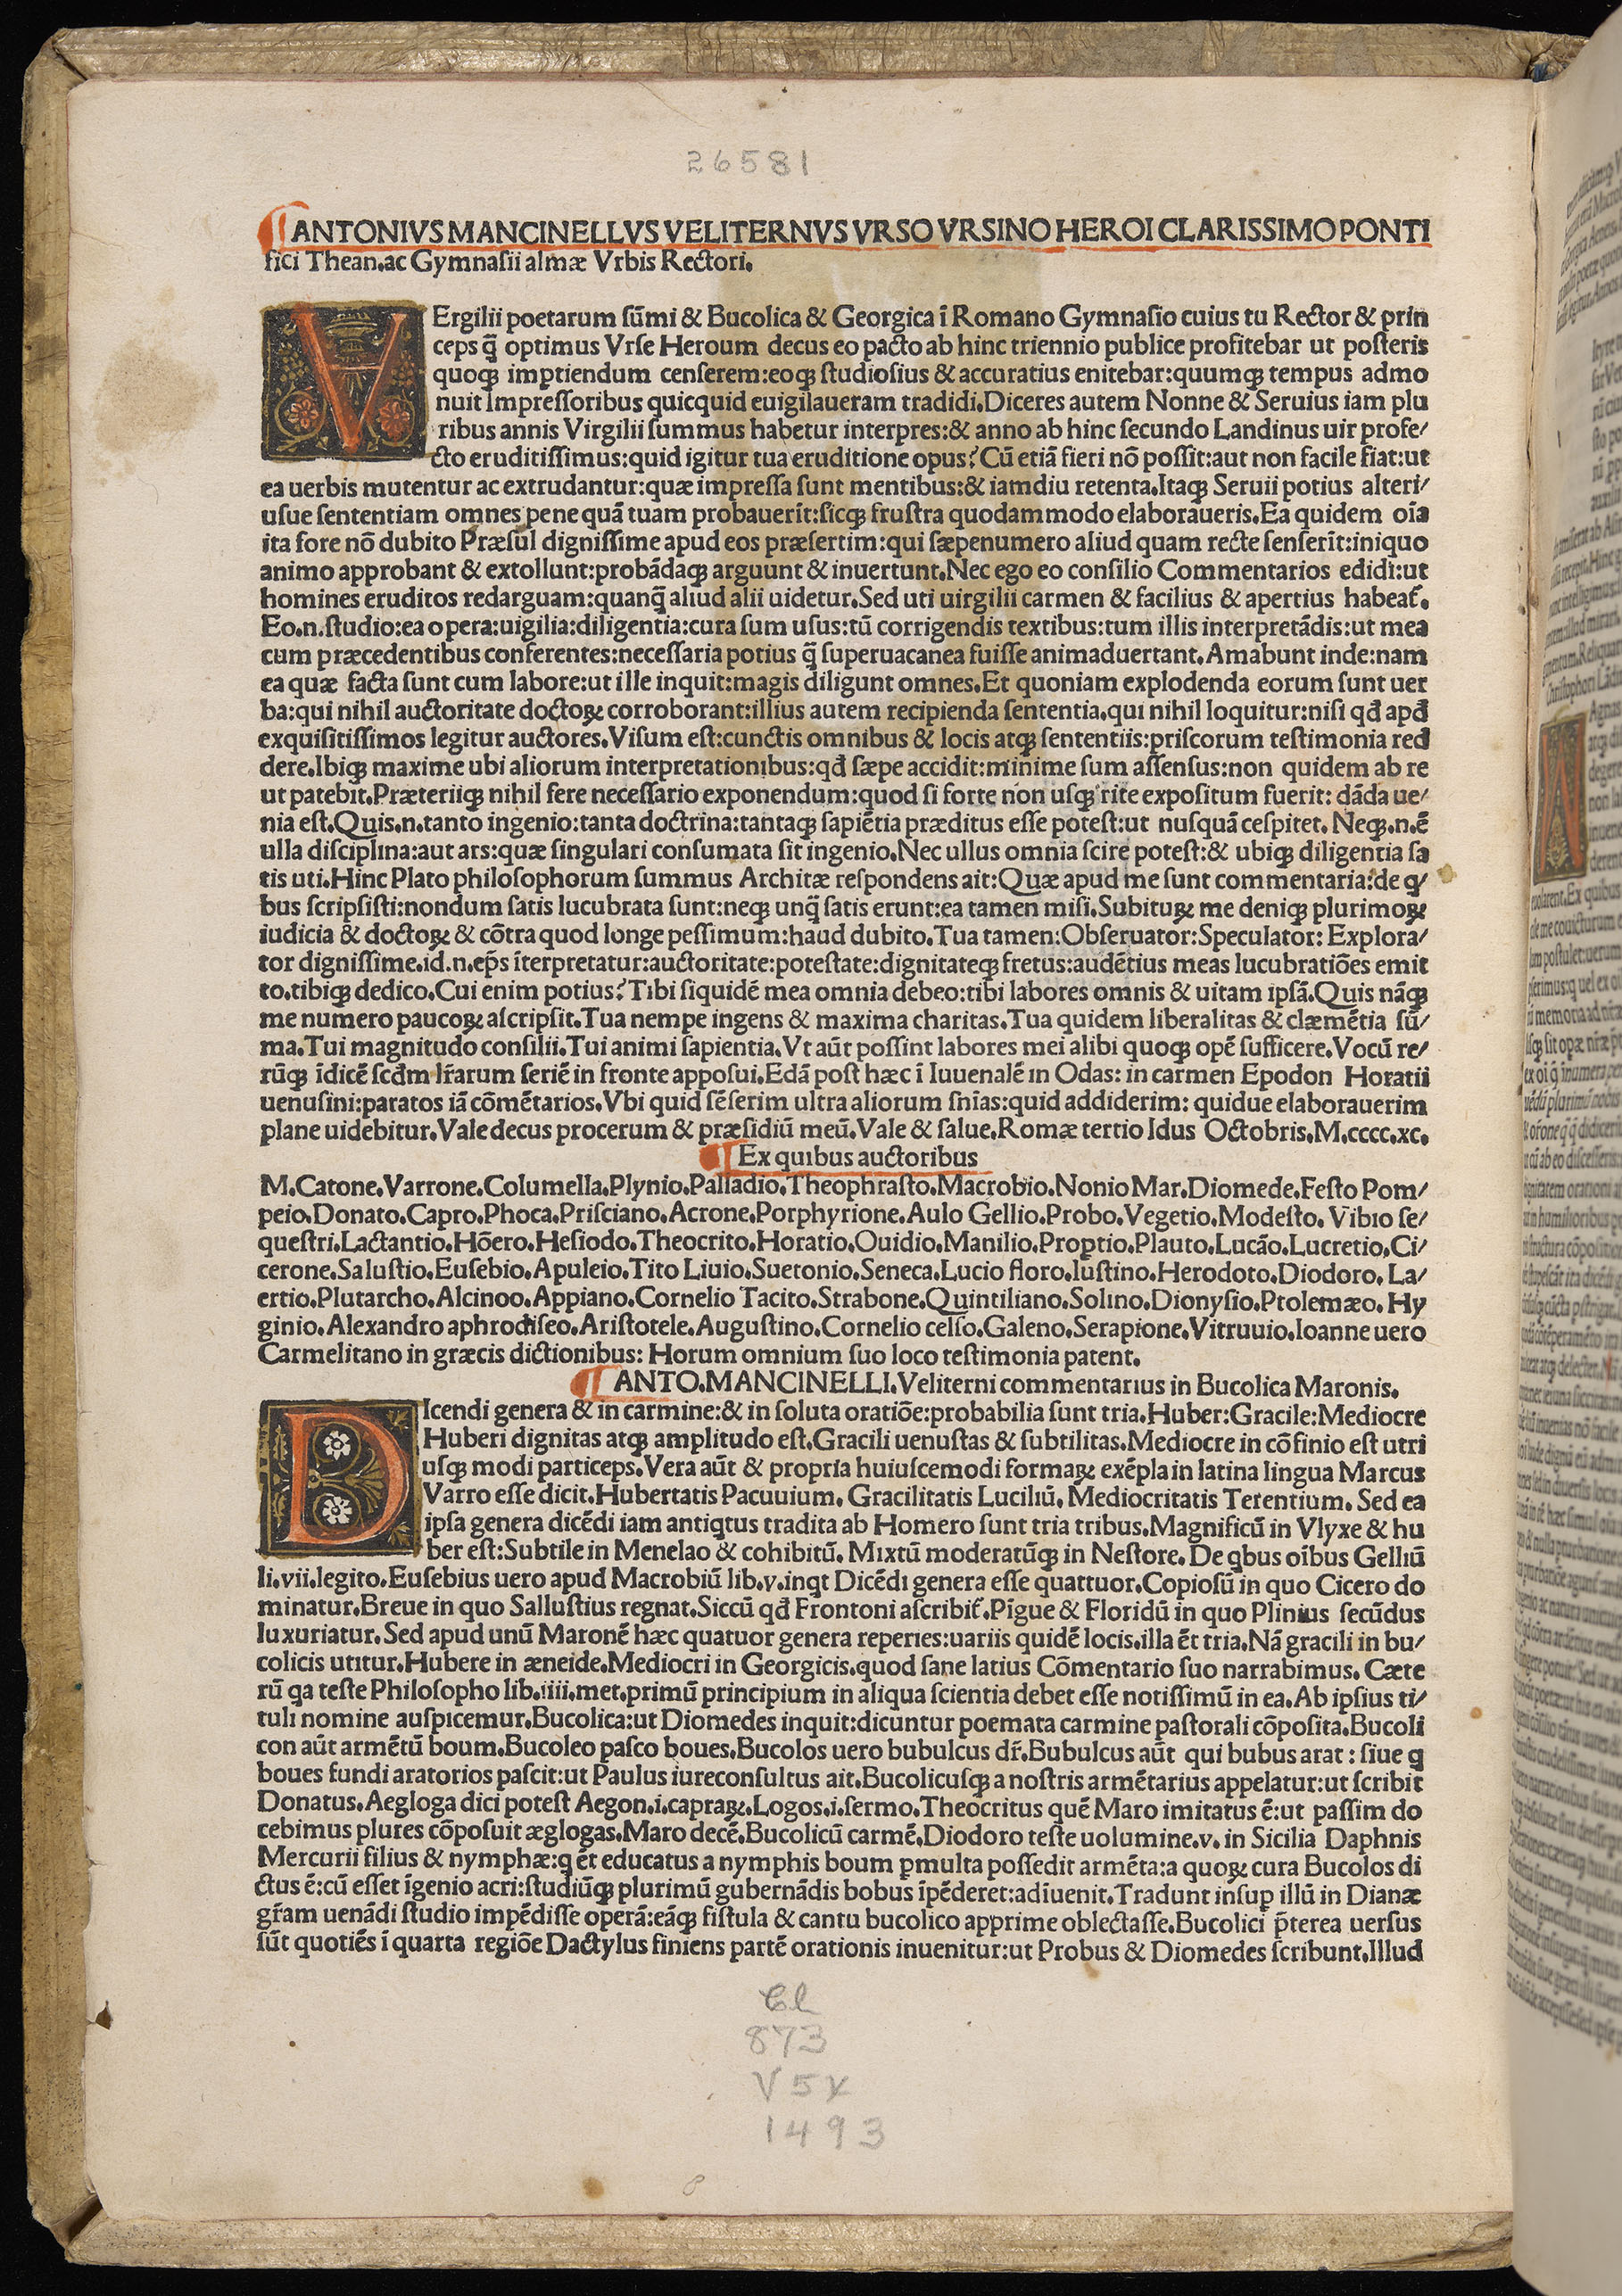 26581
¶ANTONIVS MANCINELLVS VELITERNVS VRSO VRSINO HEROI CLARISSIMO PONTI
fici Thean.ac Gymnaſii almæ Vrbis Rectori.
VErgilii poetarum ſūmi & Bucolica & Georgica ī Romano Gymnaſio cuius tu Rector & prin
ceps q̄ optimus Vrſe Heroum decus eo pacto ab hinc triennio publice profitebar ut poſteris
quoqꝫ imꝑtiendum cenſerem:eoqꝫ ſtudioſius & accuratius enitebar:quumqꝫ tempus admo
nuit Impreſſoribus quicquid euigilaueram tradidi.Diceres autem Nonne & Seruius iam plu
ribus annis Virgilii ſummus habetur interpres:& anno ab hinc ſecundo Landinus uir profe/
cto eruditiſſimus:quid igitur tua eruditione opus? Cū etiā fieri nō poſſit:aut non facile fiat:ut
ea uerbis mutentur ac extrudantur:quæ impreſſa ſunt mentibus:& iamdiu retenta.Itaqꝫ Seruii potius alteri/
uſue ſententiam omnes pene quā tuam probauerīt:ſicqꝫ fruſtra quodammodo elaboraueris.Ea quidem oīa
ita fore nō dubito Præſul digniſſime apud eos præſertim:qui ſæpenumero aliud quam recte ſenſerīt:iniquo
animo approbant & extollunt:probādaqꝫ arguunt & inuertunt.Nec ego eo conſilio Commentarios edidi:ut
homines eruditos redarguam:quanq̄ aliud alii uidetur.Sed uti uirgilii carmen & facilius & apertius habeat̄.
Eo.n.ſtudio:ea opera:uigilia:diligentia:cura ſum uſus:tū corrigendis textibus:tum illis interpretādis:ut mea
cum præcedentibus conferentes:neceſſaria potius q̄ ſuperuacanea fuiſſe animaduertant.Amabunt inde:nam
ea quæ facta ſunt cum labore:ut ille inquit:magis diligunt omnes.Et quoniam explodenda eorum ſunt uer
ba:qui nihil auctoritate doctoꝝ corroborant:illius autem recipienda ſententia.qui nihil loquitur:niſi qđ apđ
exquiſitiſſimos legitur auctores.Viſum eſt:cunctis omnibus & locis atqꝫ ſententiis:priſcorum teſtimonia red
dere.Ibiqꝫ maxime ubi aliorum interpretationibus:qđ ſæpe accidit:minime ſum aſſenſus:non quidem ab re
ut patebit.Præteriiqꝫ nihil fere neceſſario exponendum:quod ſi forte non uſqꝫ rite expoſitum fuerit: dāda ue/
nia eſt.Quis.n.tanto ingenio:tanta doctrina:tantaqꝫ ſapiētia præditus eſſe poteſt:ut nuſquā ceſpitet. Neqꝫ.n.ē
ulla diſciplina:aut ars:quæ ſingulari conſumata ſit ingenio.Nec ullus omnia ſcire poteſt:& ubiqꝫ diligentia ſa
tis uti.Hinc Plato philoſophorum ſummus Architæ reſpondens ait:Quæ apud me ſunt commentaria:de q/
bus ſcripſiſti:nondum ſatis lucubrata ſunt:neqꝫ unq̄ ſatis erunt:ea tamen miſi.Subituꝝ me deniqꝫ plurimoꝝ
iudicia & doctoꝝ & cōtra quod longe peſſimum:haud dubito.Tua tamen:Obſeruator:Speculator: Explora/
tor digniſſime.id.n.ep̄s īterpretatur:auctoritate:poteſtate:dignitateqꝫ fretus:audētius meas lucubratiōes emit
to.tibiqꝫ dedico.Cui enim potius? Tibi ſiquidē mea omnia debeo:tibi labores omnis & uitam ipſā.Quis nāqꝫ
me numero paucoꝝ aſcripſit.Tua nempe ingens & maxima charitas.Tua quidem liberalitas & clæmētia ſū/
ma.Tui magnitudo conſilii.Tui animi ſapientia.Vt aūt poſſint labores mei alibi quoqꝫ opē ſufficere.Vocū re/
rūqꝫ īdicē ſcđm lr̄arum ſeriē in fronte appoſui.Edā poſt hæc ī Iuuenalē in Odas: in carmen Epodon Horatii
uenuſini:paratos iā cōmētarios.Vbi quid ſēſerim ultra aliorum ſnīas:quid addiderim: quidue elaborauerim
plane uidebitur.Vale decus procerum & præſidiū meū.Vale & ſalue.Romæ tertio Idus Octobris.M.cccc.xc.
¶Ex quibus auctoribus
M.Catone.Varrone.Columella.Plynio.Palladio.Theophraſto.Macrobio.Nonio Mar.Diomede.Feſto Pom/
peio.Donato.Capro.Phoca.Priſciano.Acrone.Porphyrione.Aulo Gellio.Probo.Vegetio.Modeſto. Vibio ſe/
queſtri.Lactantio.Hōero.Heſiodo.Theocrito.Horatio.Ouidio.Manilio.Proꝑtio.Plauto.Lucāo.Lucretio.Ci/
cerone.Saluſtio.Euſebio.Apuleio.Tito Liuio.Suetonio.Seneca.Lucio floro.Iuſtino.Herodoto.Diodoro. La/
ertio.Plutarcho.Alcinoo.Appiano.Cornelio Tacito.Strabone.Quintiliano.Solino.Dionyſio.Ptolemæo. Hy
ginio.Alexandro aphrodiſeo.Ariſtotele.Auguſtino.Cornelio celſo.Galeno.Serapione.Vitruuio.Ioanne uero
Carmelitano in græcis dictionibus: Horum omnium ſuo loco teſtimonia patent.
¶ANTO.MANCINELLI.Veliterni commentarius in Bucolica Maronis.
DIcendi genera & in carmine:& in ſoluta oratiōe:probabilia ſunt tria.Huber:Gracile:Mediocre
Huberi dignitas atqꝫ amplitudo eſt.Gracili uenuſtas & ſubtilitas.Mediocre in cōfinio eſt utri
uſqꝫ modi particeps.Vera aūt & propria huiuſcemodi formaꝝ exēpla in latina lingua Marcus
Varro eſſe dicit.Hubertatis Pacuuium. Gracilitatis Luciliū. Mediocritatis Terentium. Sed ea
ipſa genera dicēdi iam antiqtus tradita ab Homero ſunt tria tribus.Magnificū in Vlyxe & hu
ber eſt:Subtile in Menelao & cohibitū. Mixtū moderatūqꝫ in Neſtore. De qbus oībus Gelliū
li.vii.legito.Euſebius uero apud Macrobiū lib.v.inqt Dicēdi genera eſſe quattuor.Copioſū in quo Cicero do
minatur.Breue in quo Salluſtius regnat.Siccū qđ Frontoni aſcribit̄.Pīgue & Floridū in quo Plinius ſecūdus
luxuriatur. Sed apud unū Maronē hæc quatuor genera reperies:uariis quidē locis.illa ēt tria.Nā gracili in bu/
colicis utitur.Hubere in æneide.Mediocri in Georgicis.quod ſane latius Cōmentario ſuo narrabimus. Cæte
rū qa teſte Philoſopho lib.iiii.met.primū principium in aliqua ſcientia debet eſſe notiſſimū in ea.Ab ipſius ti/
tuli nomine auſpicemur.Bucolica:ut Diomedes inquit:dicuntur poemata carmine paſtorali cōpoſita.Bucoli
con aūt armētū boum.Bucoleo paſco boues.Bucolos uero bubulcus dr̄.Bubulcus aūt qui bubus arat : ſiue q
boues fundi aratorios paſcit:ut Paulus iureconſultus ait.Bucolicuſqꝫ a noſtris armētarius appelatur:ut ſcribit
Donatus.Aegloga dici poteſt Aegon.i.capraꝝ.Logos.i.ſermo.Theocritus quē Maro imitatus ē:ut paſſim do
cebimus plures cōpoſuit æglogas.Maro decē.Bucolicū carmē.Diodoro teſte uolumine.v. in Sicilia Daphnis
Mercurii filius & nymphæ:q ēt educatus a nymphis boum ꝑmulta poſſedit armēta:a quoꝝ cura Bucolos di
ctus ē:cū eſſet īgenio acri:ſtudiūqꝫ plurimū gubernādis bobus īpēderet:adiuenit.Tradunt inſuꝑ illū in Dianæ
gr̄am uenādi ſtudio impēdiſſe operā:eāqꝫ fiſtula & cantu bucolico apprime oblectaſſe.Bucolici p̄terea uerſus
ſūt quotiēs ī quarta regiōe Dactylus finiens partē orationis inuenitur:ut Probus & Diomedes ſcribunt.Illud
873
V5x
1493